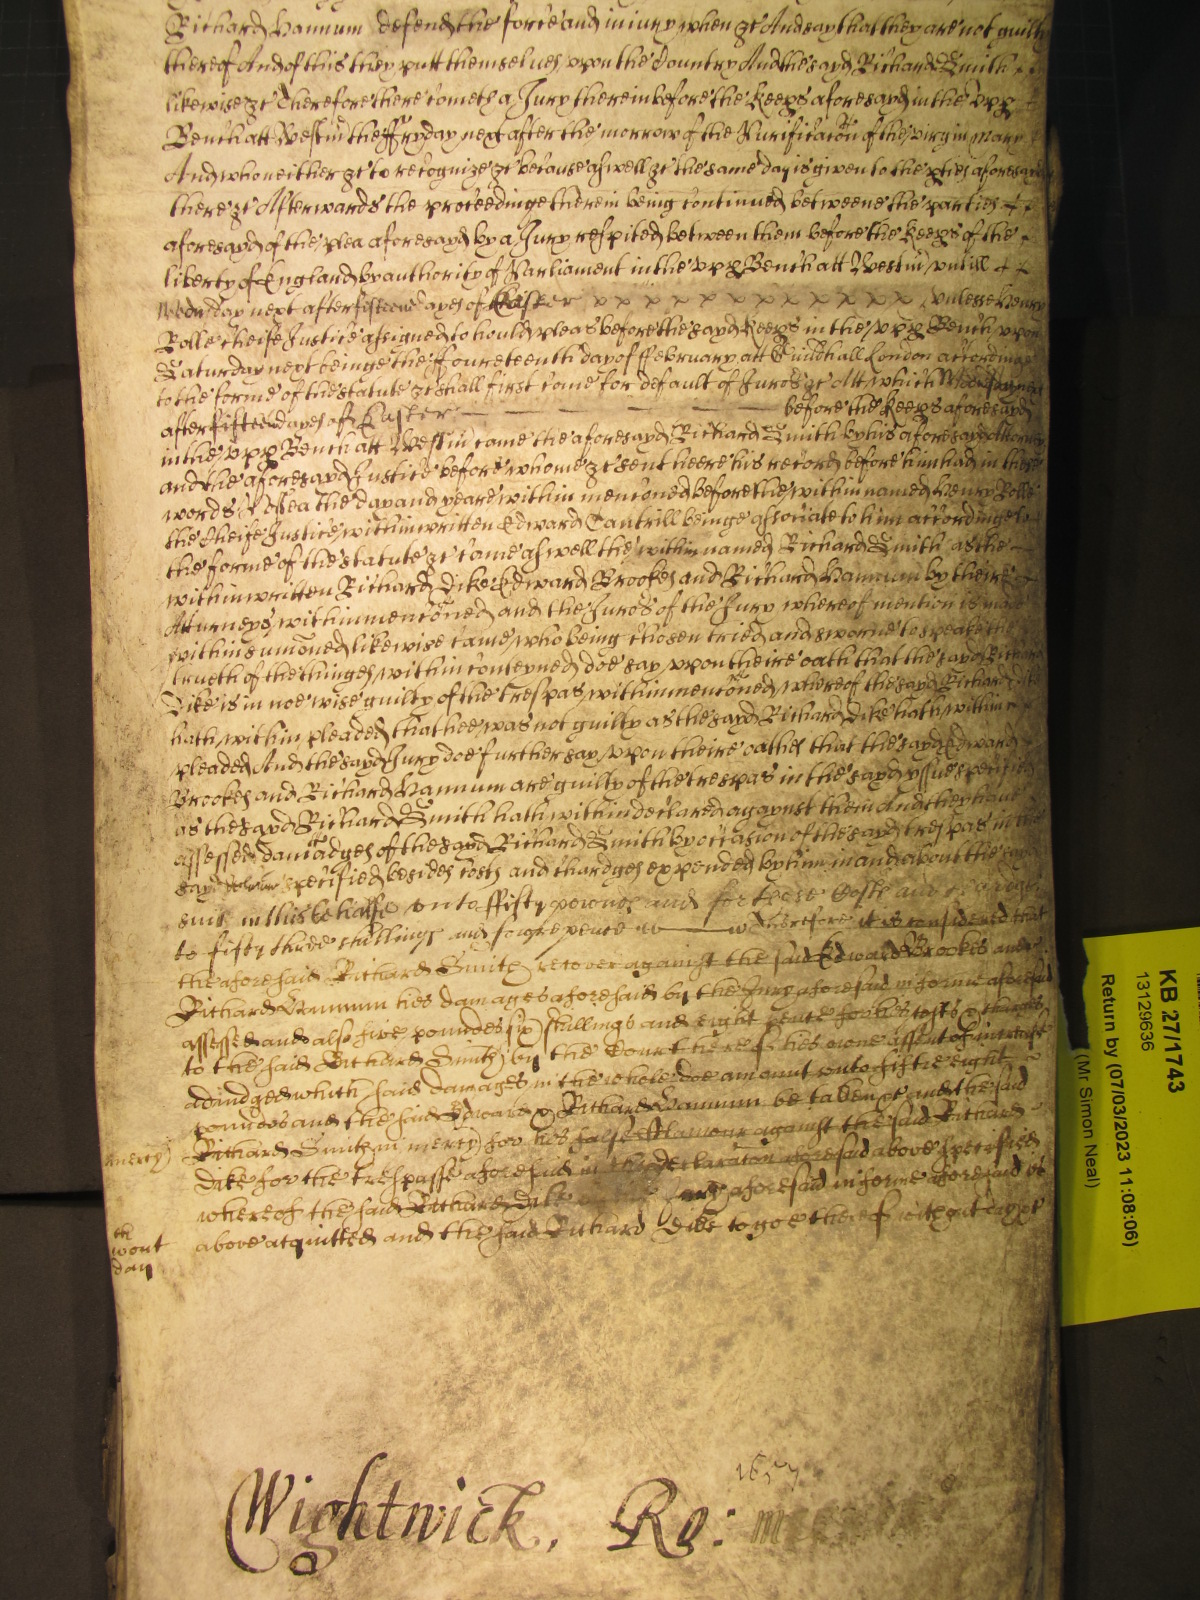 Richard Hannum defend the force and iniury when &c And say that they are not guilty
thereof And of this they putt themselues vpon the Country And the sayd Richard Smith
likewise &c Therefore there cometh a Jury therein before the Keeps aforesayd in the vpp
Bench att Westm the ffryday next after the morrow of the Purificacon of the virgin Mary
And who neither &c to recognize &c because aswell &c the same day is given to the pties aforesayd
there &c Afterwards the proceedinge therein being continued betweene the parties
aforesayd of the plea aforesayd by a Jury respited between them before the Keeps of the
liberty of England by authority of Parliament in the vpp Bench att Westm vntill
Wednsday next after fifteene dayes of Easter x x x x x x x x x x x x x vnlesse Henry
Rolle cheife Justice assigned to hould pleas before the sayd Keeps in the vpp Bench vpon
Saturday next beinge the ffoureteenth day of ffebruary att Guildhall London accordinge
to the forme of the statute &c shall first come for default of Juros &c Att which Wednsday next
after fifteene dayes of Easter — — — — — before the Keeps aforesayd
in the vpp Bench att Westm came the aforesayd Richard Smith by his aforesayd Attorney
and the aforesayd Justice before whome &c sent heere his record before him had in these
words Postea the day and yeare within menconed before the within named Henry Rolle
the Cheife Justice within written Edward Cantrill beinge associate to him accordinge to
the forme of the statute &c came aswell the within named Richard Smith as the
within written Richard Dike Edward Brookes and Richard Hannum by theire
Atturneys within menconed and the Juros of the Jury whereof mention is made
within sumoned likewise came who being chosen tried and sworne to speake the
trueth of the thinges within conteyned doe say vpon theire oath that the sayd Richard
Dike is in noe wise guilty of the trespas within menconed whereof the sayd Richard
hath within pleaded that hee was not guilty as the sayd Richard Dike hath within
pleaded And the sayd Jury doe further say vpon theire oathes that the sayd Edward
Brookes and Richard Hannum are guilty of the trespas in the sayd yssue specified
as the sayd Richard Smith hath within declared against them And they haue
assessed damadges of the sayd Richard Smith by occasion of the sayd trespas in the
sayd specified besides costs and chardges expended by him in and about the sayd
suit in this behalfe vnto ffifty pounds and for those Costs and chardges
to fifty three shillings and foure pence Wherefore it is considered that
the aforesaid Richard Smith recover against the said Edward Brookes and
Richard Hannum his damages aforesaid by the Jury aforesaid in forme aforesaid
assessed and also five poundes six shillings and eight pence for his costs & charges
to the said Richard Smith by the Court here of his owne assent of increase
adiudged which said damages in the whole doe amount vnto fiftie eight
poundes and the said Edward & Richard Hannum be taken &c and the said
mercy Richard Smith in mercy for his false clamour against the said Richard
Dike for the trespasse aforesaid in the declaracon aforesaid above specified
whereof the said Richard Dike Jury aforesaid in forme aforesaid is
above acquitted and the said Richard Dike to goe thereof without day &c
wout
day
1657
Wightwick. Ro:
KB 27/1743
13129636
Return by (07/03/2023 11:08:06)
(Mr Simon Neal)